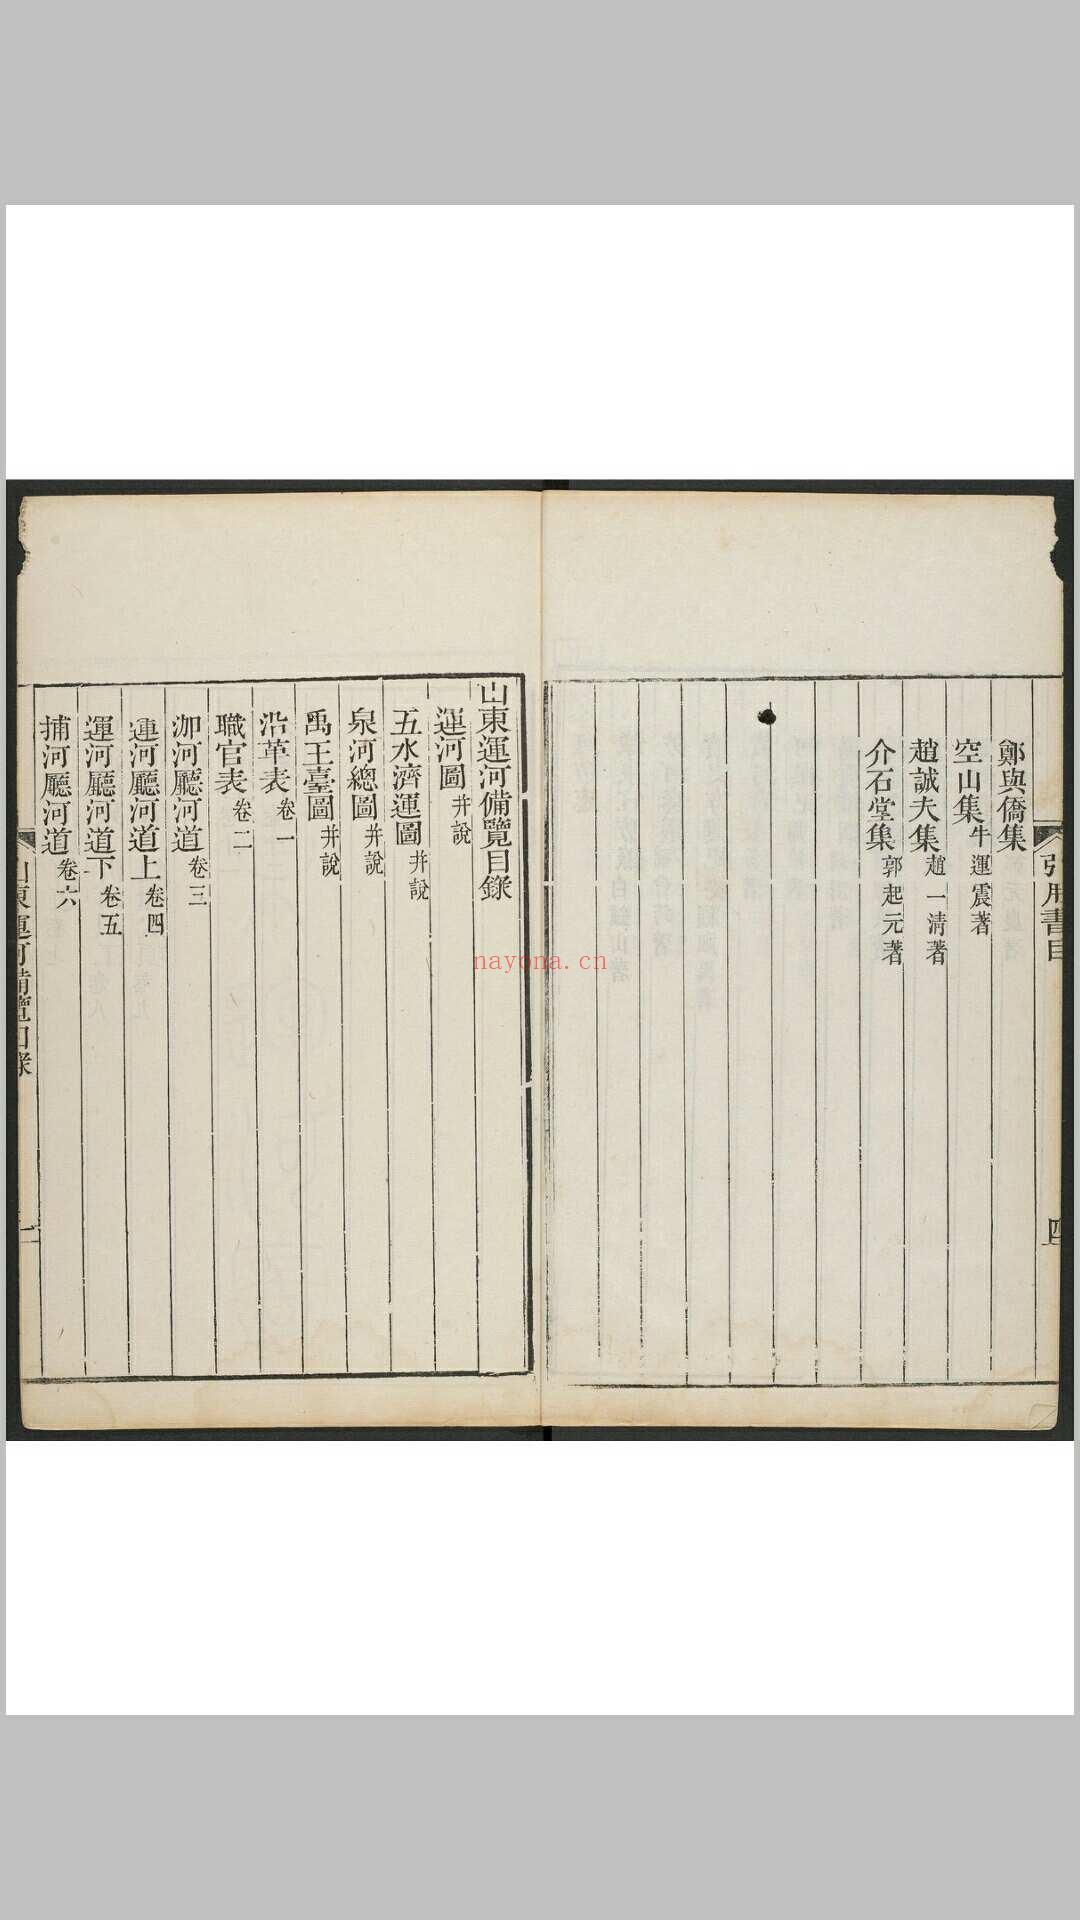 鄭與僑集
空山集 牛運震著
趙誠夫集 趙一淸著
介石堂集 郭起元著
引用書目
四
山東運河備覽目錄
運河圖 并說
五水濟運圖 并說
泉河總圖 并說
禹王臺圖 并說
沿革表 卷一
職官表 卷二
泇河廳河道 卷三
運河廳河道上 卷四
運河廳河道下 卷五
捕河廳河道 卷六
山東運河備覽目錄
一
nayona.cn